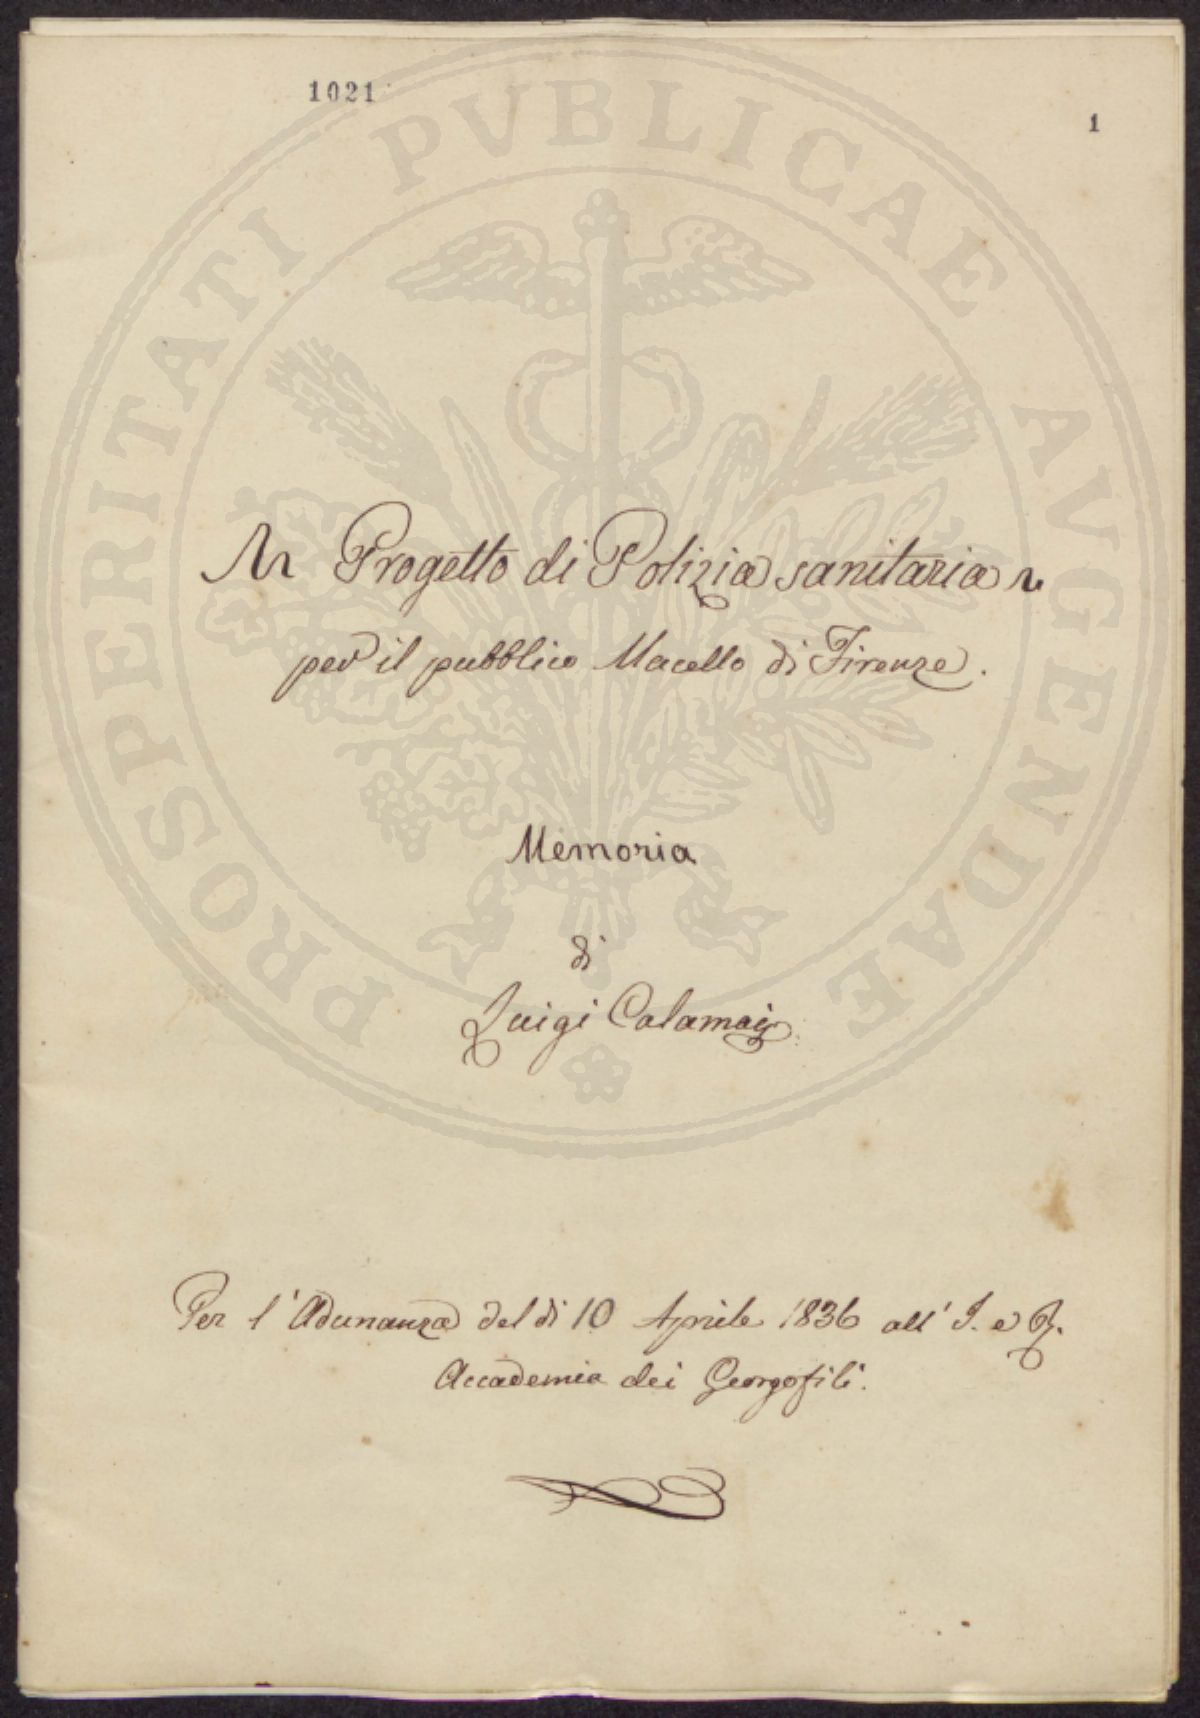 1021
1
PROSPERITATI PVBLICAE AVGENDAE
Progetto di Polizia sanitaria
per il pubblico Macello di Firenze.
Memoria
di
Luigi Calamai
Per l'Adunanza del dì 10 Aprile 1836 all' I. e R.
Accademia dei Georgofili.